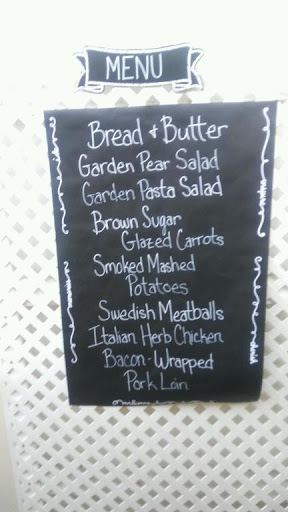 MENU
Bread + Butter
Garden Pear Salad
Garden Pasta Salad
Brown Sugar
Glazed Carrots
Smoked Mashed
Potatoes
Swedish Meatballs
Italian Herb Chicken
Bacon-Wrapped
Pork Loin